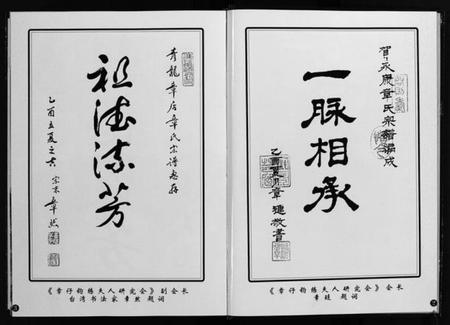 賀永康章氏宗譜編成
一脉相承
乙酉夏月章建敬書
《章仔钧练夫人研究会》副会长
章建 题词
青龍章店章氏宗谱惠存
祖德流芳
乙酉孟夏之吉
《章仔钧练夫人研究会》副会长
台湾书法家章然 题词